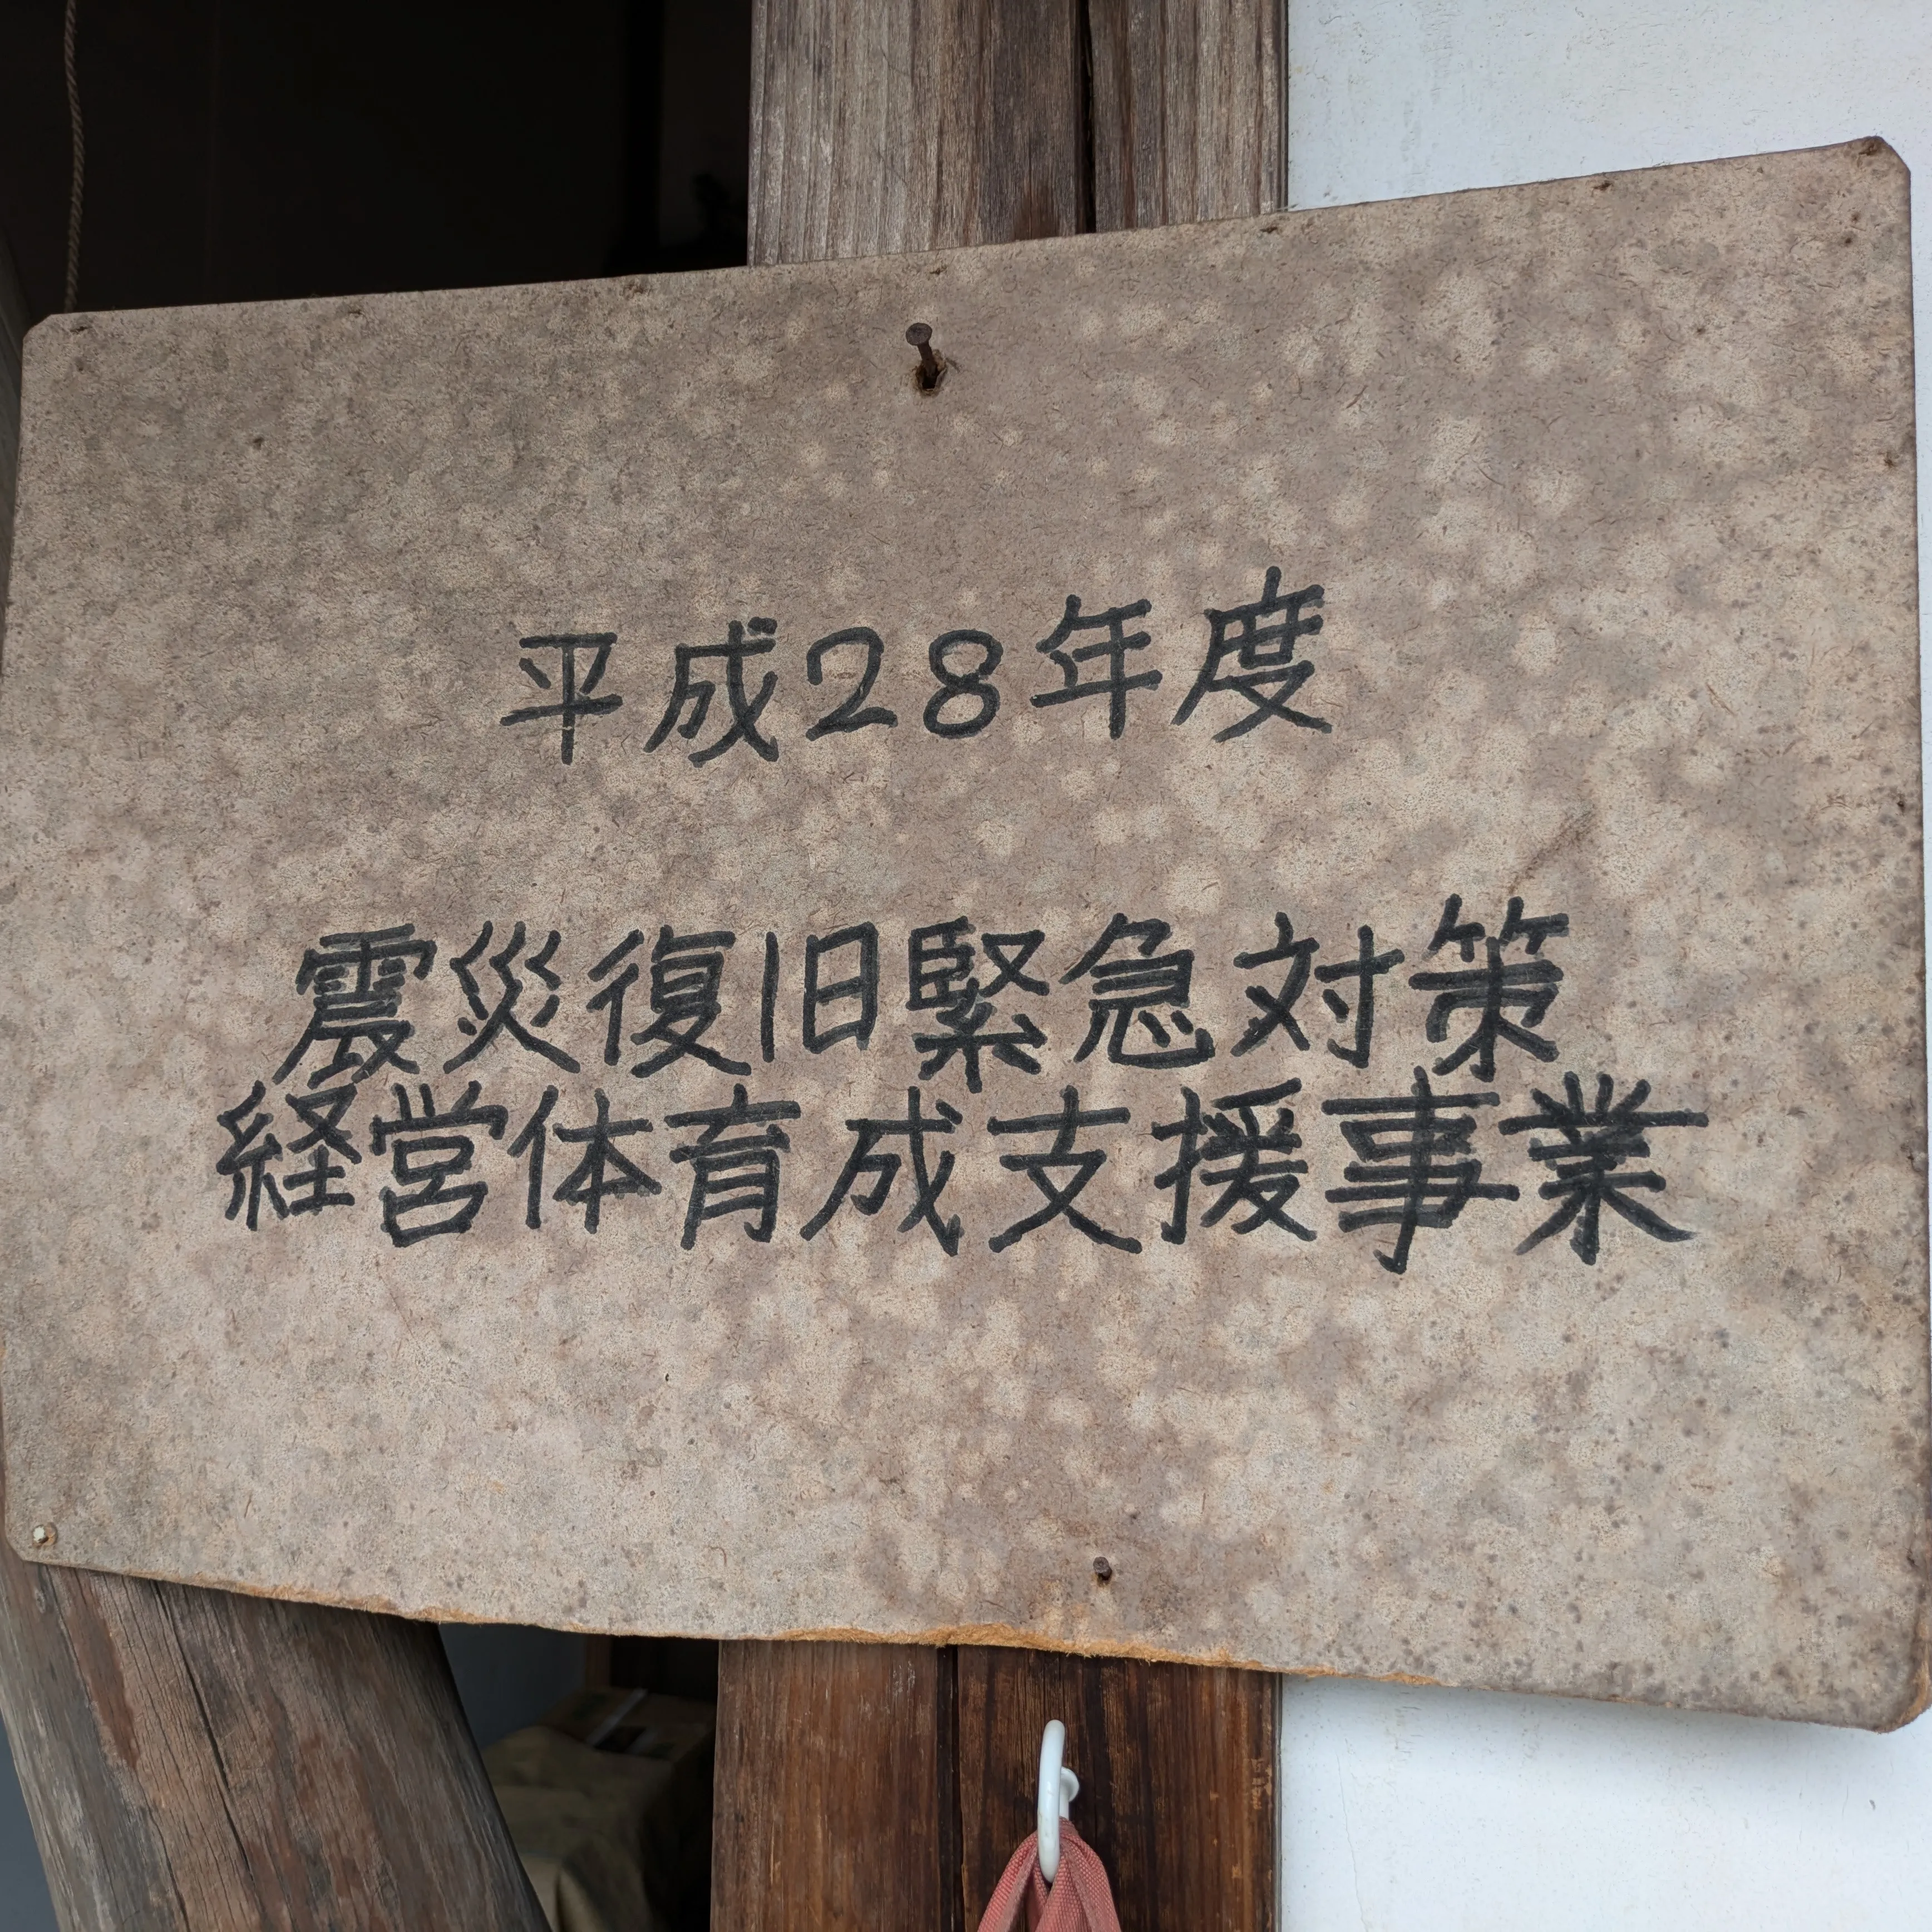 平成28年度
震災復旧緊急対策
経営体育成支援事業